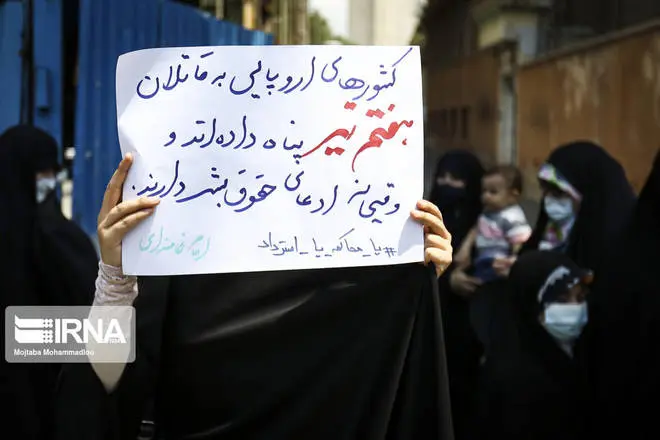 کشورهای اروپایی به قاتلان
هفتم تیر پناه داده‌اند و
وقیحانه ادعای حقوق بشر دارند.
#یا_محاکمه_یا_استرداد
IRNA
Mojtaba Mohammadlou